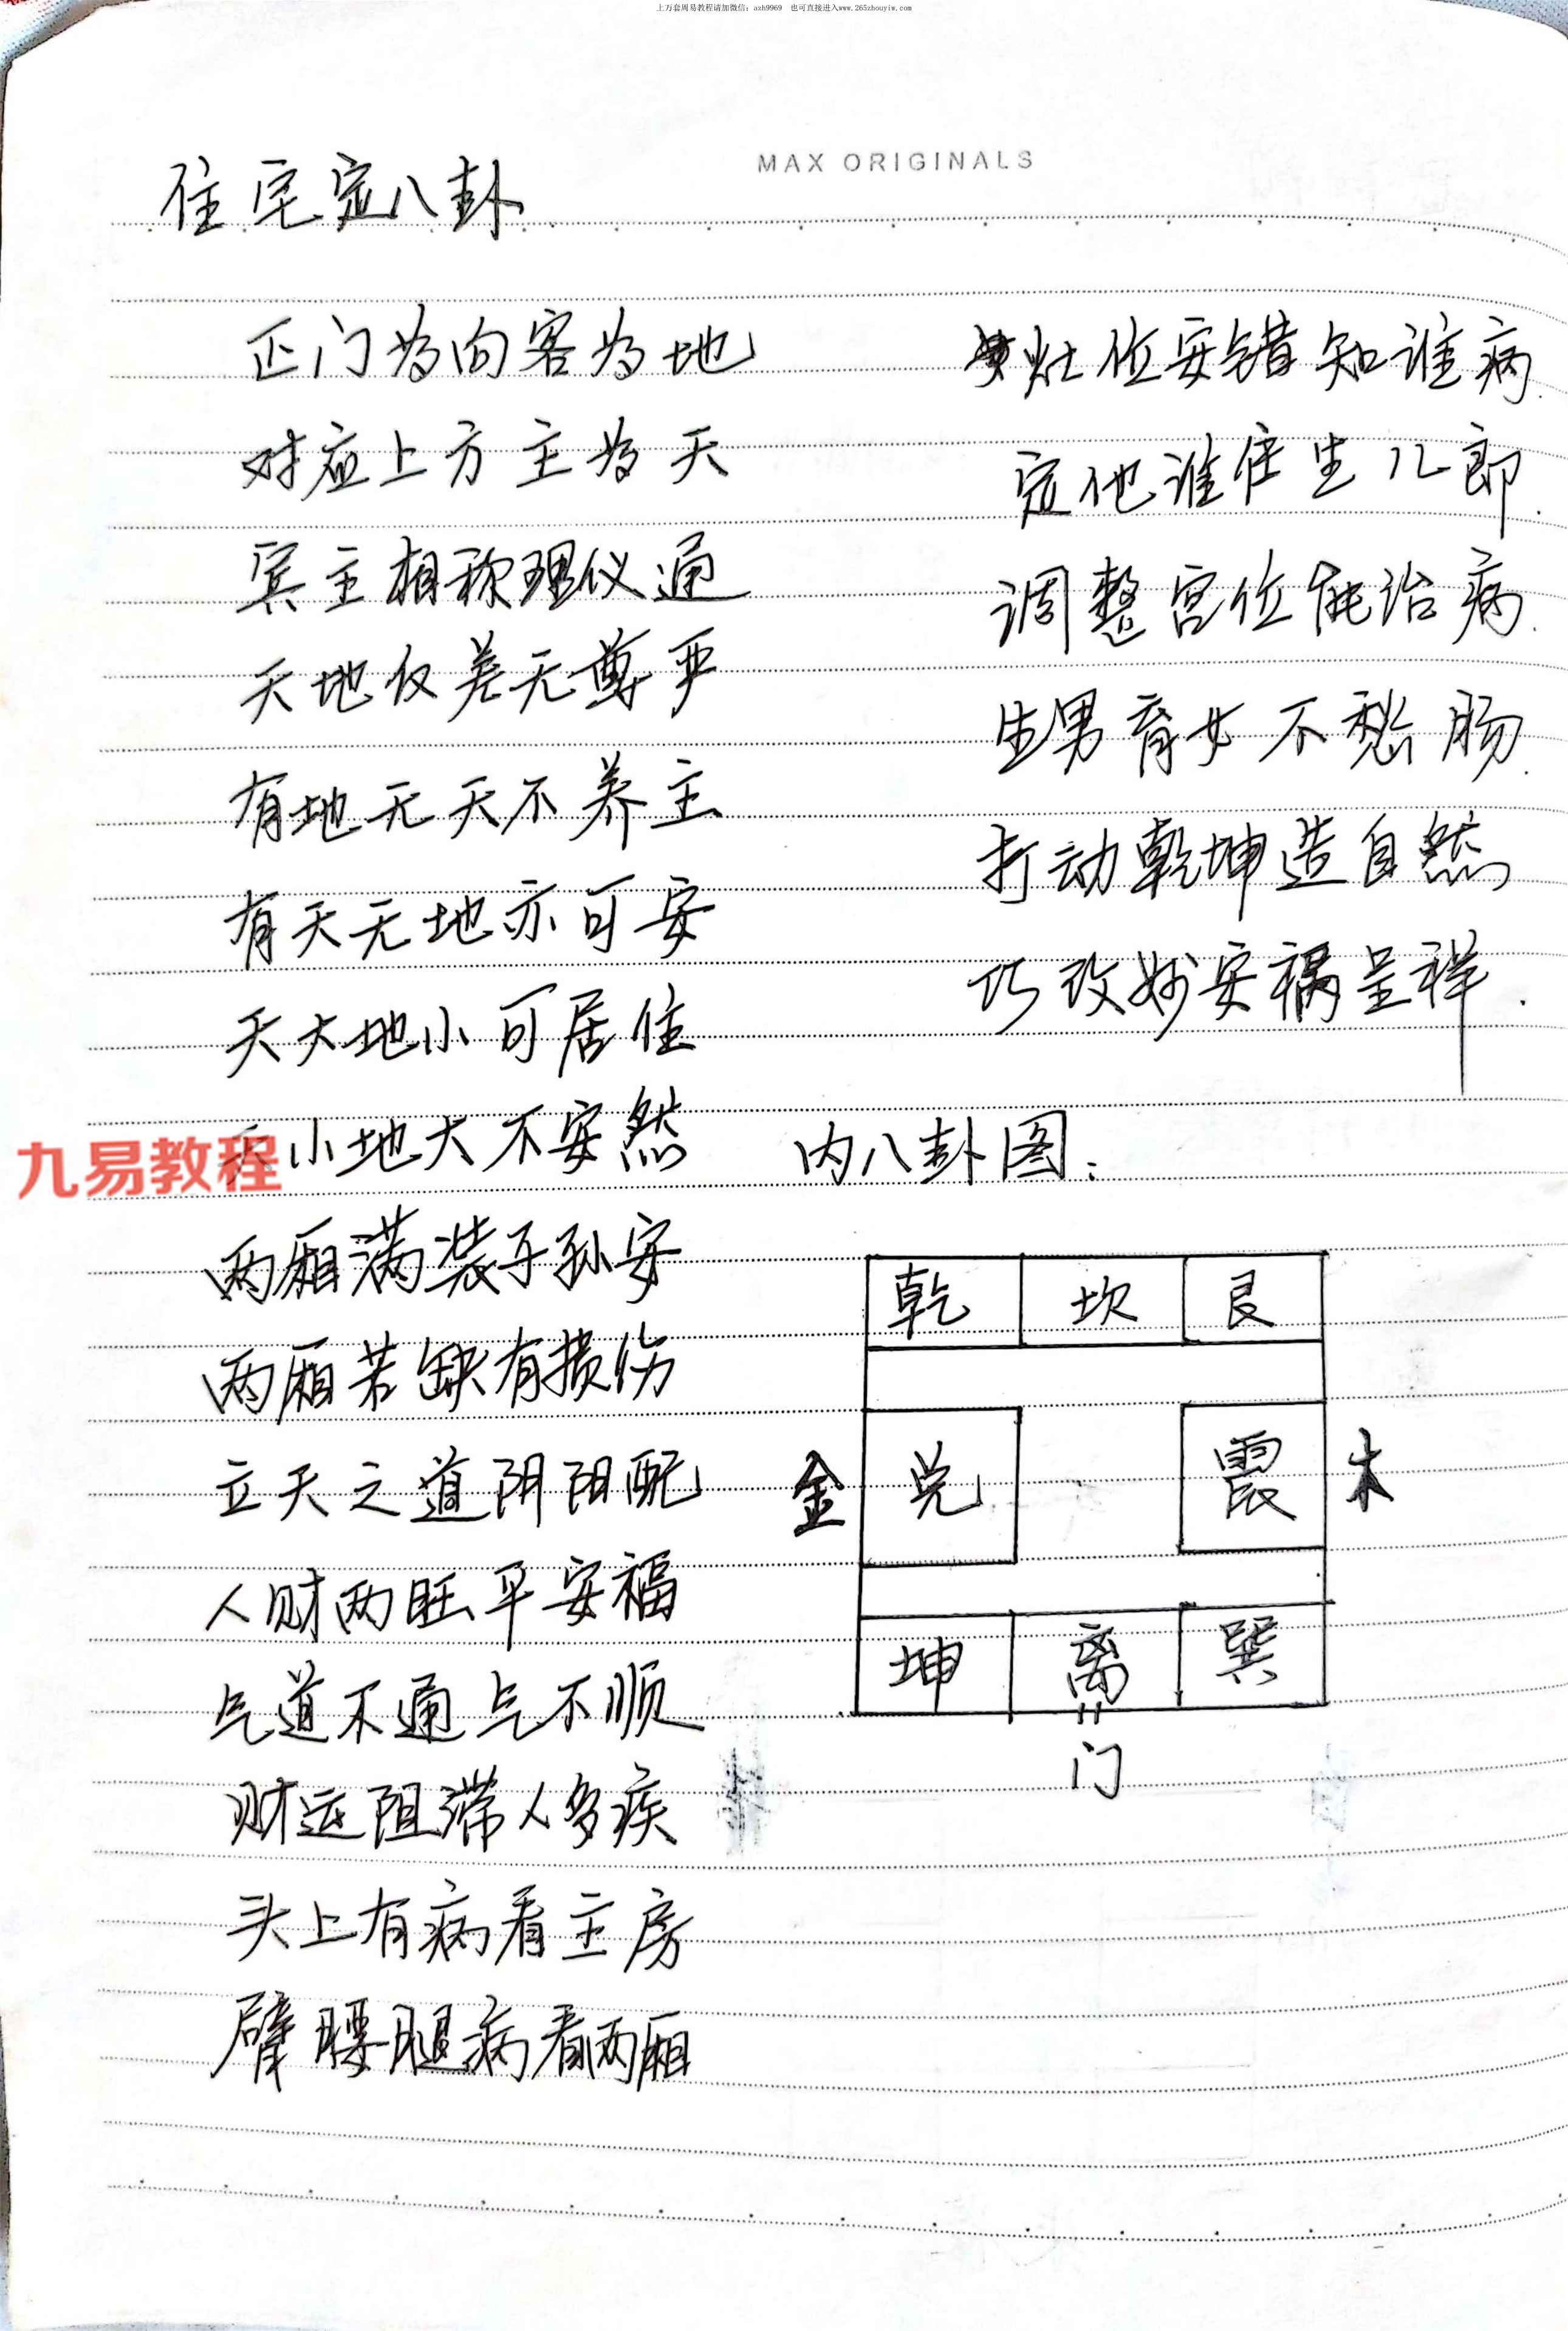 上万套周易教程请加微信：azh9969 也可直接进入www.265zhouyiw.com
MAX ORIGINALS
住宅定八卦
正门为向客为地
对应上方主为天
宾主相称理仪通
天地仅差无尊严
有地无天不养主
有天无地亦可安
天大地小可居住
小地大不安然
九易教程
两厢满装子孙安
两厢若缺有损伤
立天之道阴阳配
人财两旺平安福
气道不通气不顺
财运阻滞人多疾
头上有病看主房
臂腰腿病看两厢
灶位安错知谁病
定他谁住生儿郎
调整宫位能治病
生男育女不愁肠
打动乾坤造自然
巧改妙安祸呈祥
内八卦图：
乾 坎 艮
金 兑 震 木
坤 离 巽
门